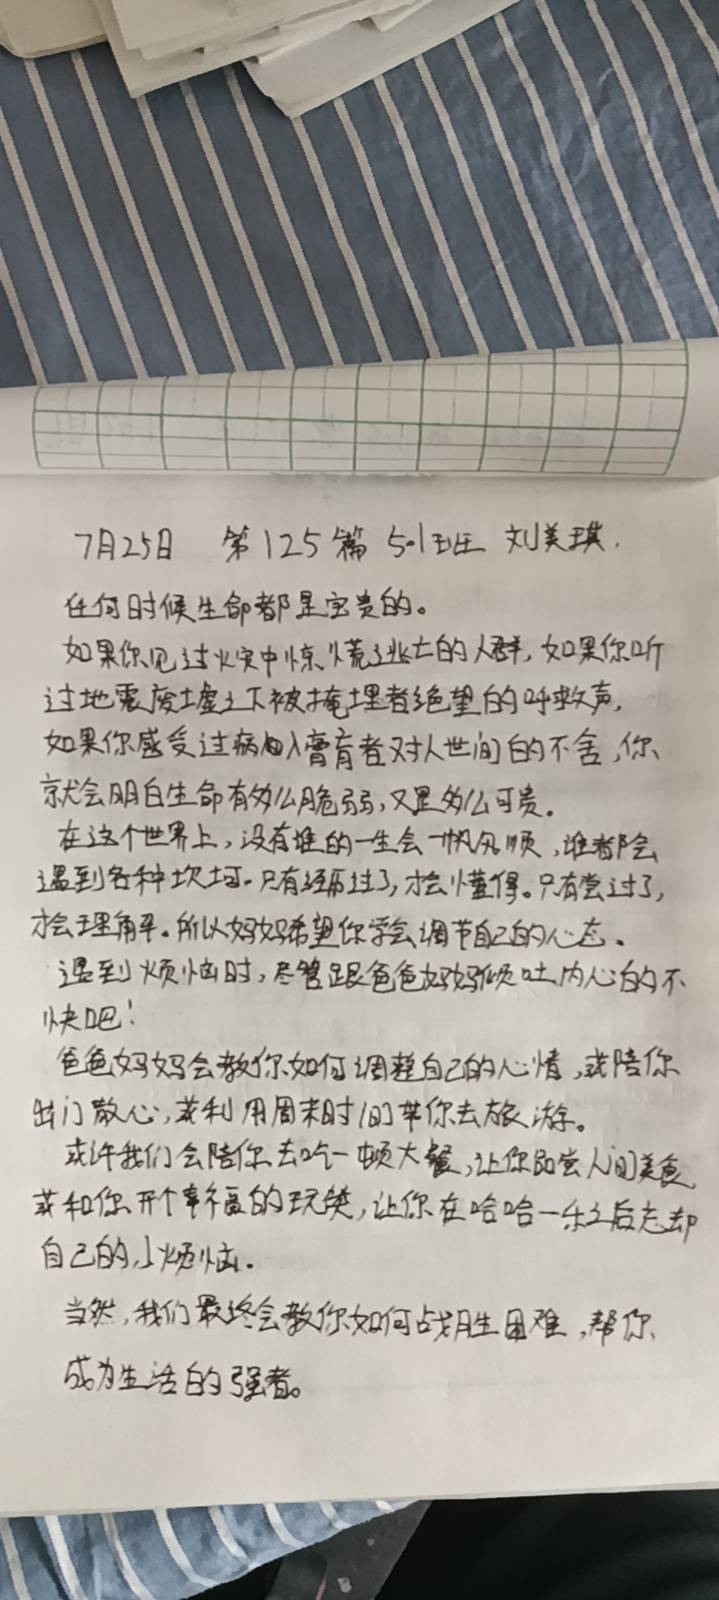 7月25日 第125篇 5.1班 刘美琪.
任何时候生命都是宝贵的。
如果你见过火灾中惊慌逃亡的人群,如果你听
过地震废墟之下被掩埋者绝望的呼救声,
如果你感受过病入膏肓者对人世间的不舍,你
就会明白生命有多么脆弱,又是多么可贵。
在这个世界上,没有谁的一生会一帆风顺,谁都会
遇到各种坎坷。只有经历过了,才会懂得。只有尝过了,
才会理解。所以妈妈希望你学会调节自己的心态。
遇到烦恼时,尽管跟爸爸妈妈倾吐内心的不
快吧!
爸爸妈妈会教你如何调整自己的心情,或陪你
出门散心,或利用周末时间带你去旅游。
或许我们会陪你去吃一顿大餐,让你品尝人间美食,
或和你开个幸福的玩笑,让你在哈哈一乐之后忘却
自己的小烦恼.
当然,我们最终会教你如何战胜困难,帮你
成为生活的强者。